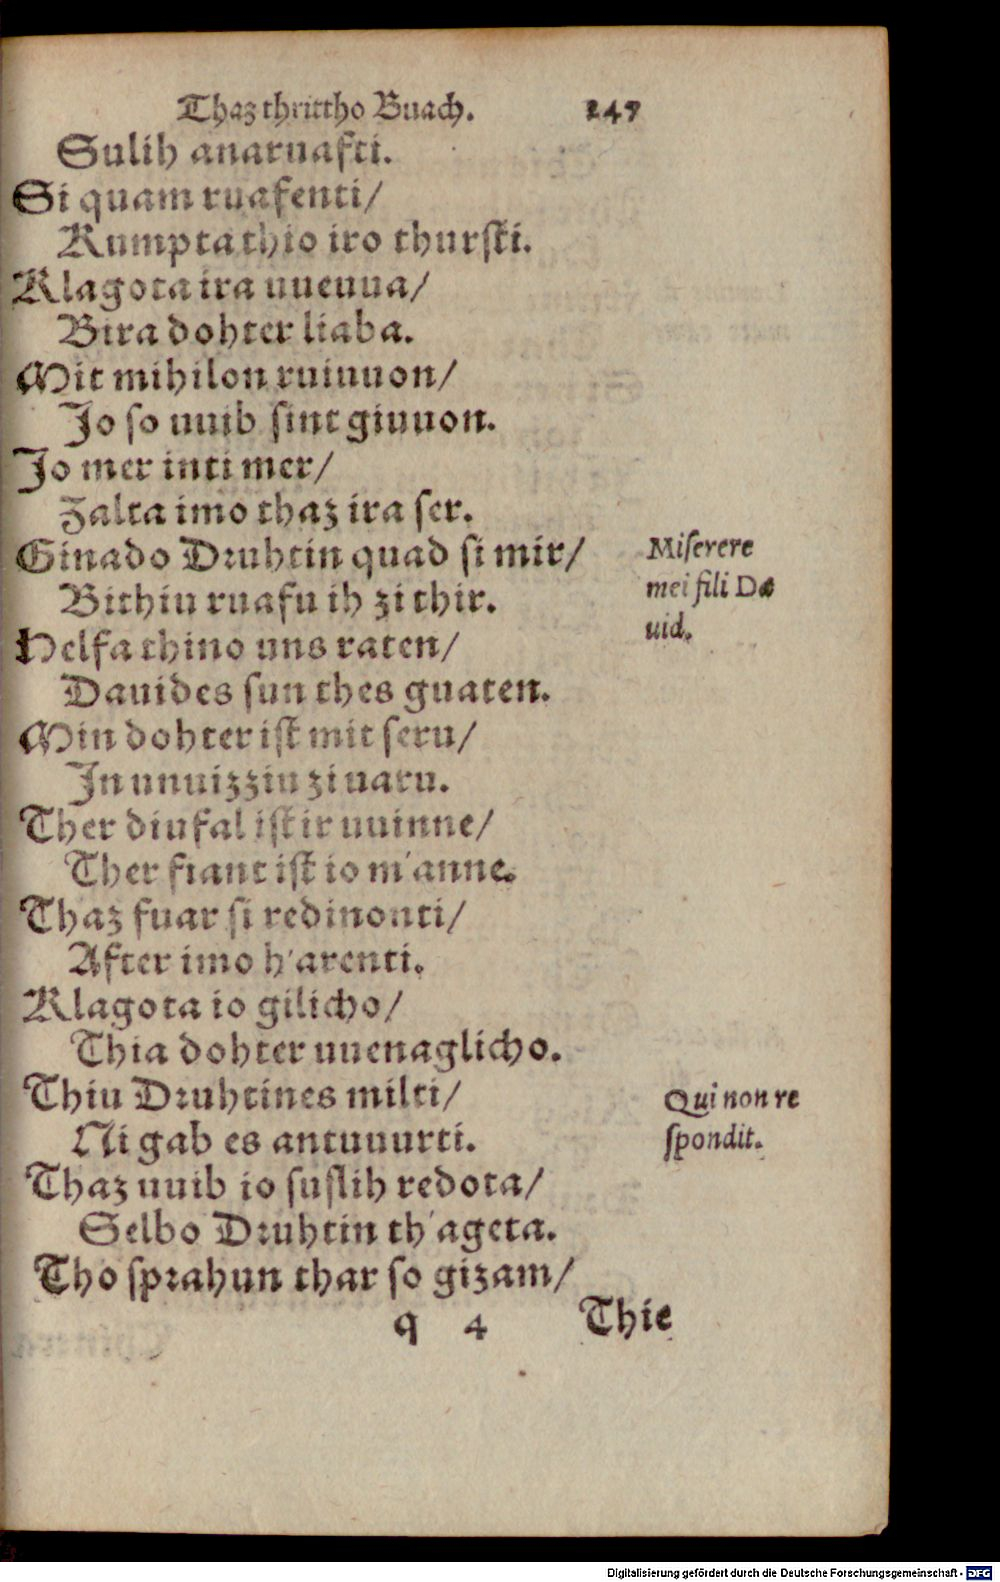 Thaz thrittho Buach. 247
Sulih anaruafti.
Si quam ruafenti/
Kumpta thio iro thursti.
Klagota ira uueuua/
Bira dohter liaba.
Mit mihilon ruiuuon/
Jo so uuib sint giuuon.
Jo mer inti mer/
Zalta imo thaz ira ser.
Ginado Druhtin quad si mir/
Bithiu ruafu ih zi thir.
Helfa thino uns raten/
Dauides sun thes guaten.
Min dohter ist mit seru/
In unuizziu zi uaru.
Ther diufal ist ir uuinne/
Ther fiant ist io m'anne.
Thaz fuar si redinonti/
After imo h'arenti.
Klagota io gilicho/
Thia dohter uuenaglicho.
Thiu Druhtines milti/
Ni gab es antuuurti.
Thaz uuib io suslih redota/
Selbo Druhtin th'ageta.
Tho sprahun thar so gizam/
q 4 Thie
Miserere
mei fili Da
uid.
Qui non re
spondit.
Digitalisierung gefördert durch die Deutsche Forschungsgemeinschaft - DFG